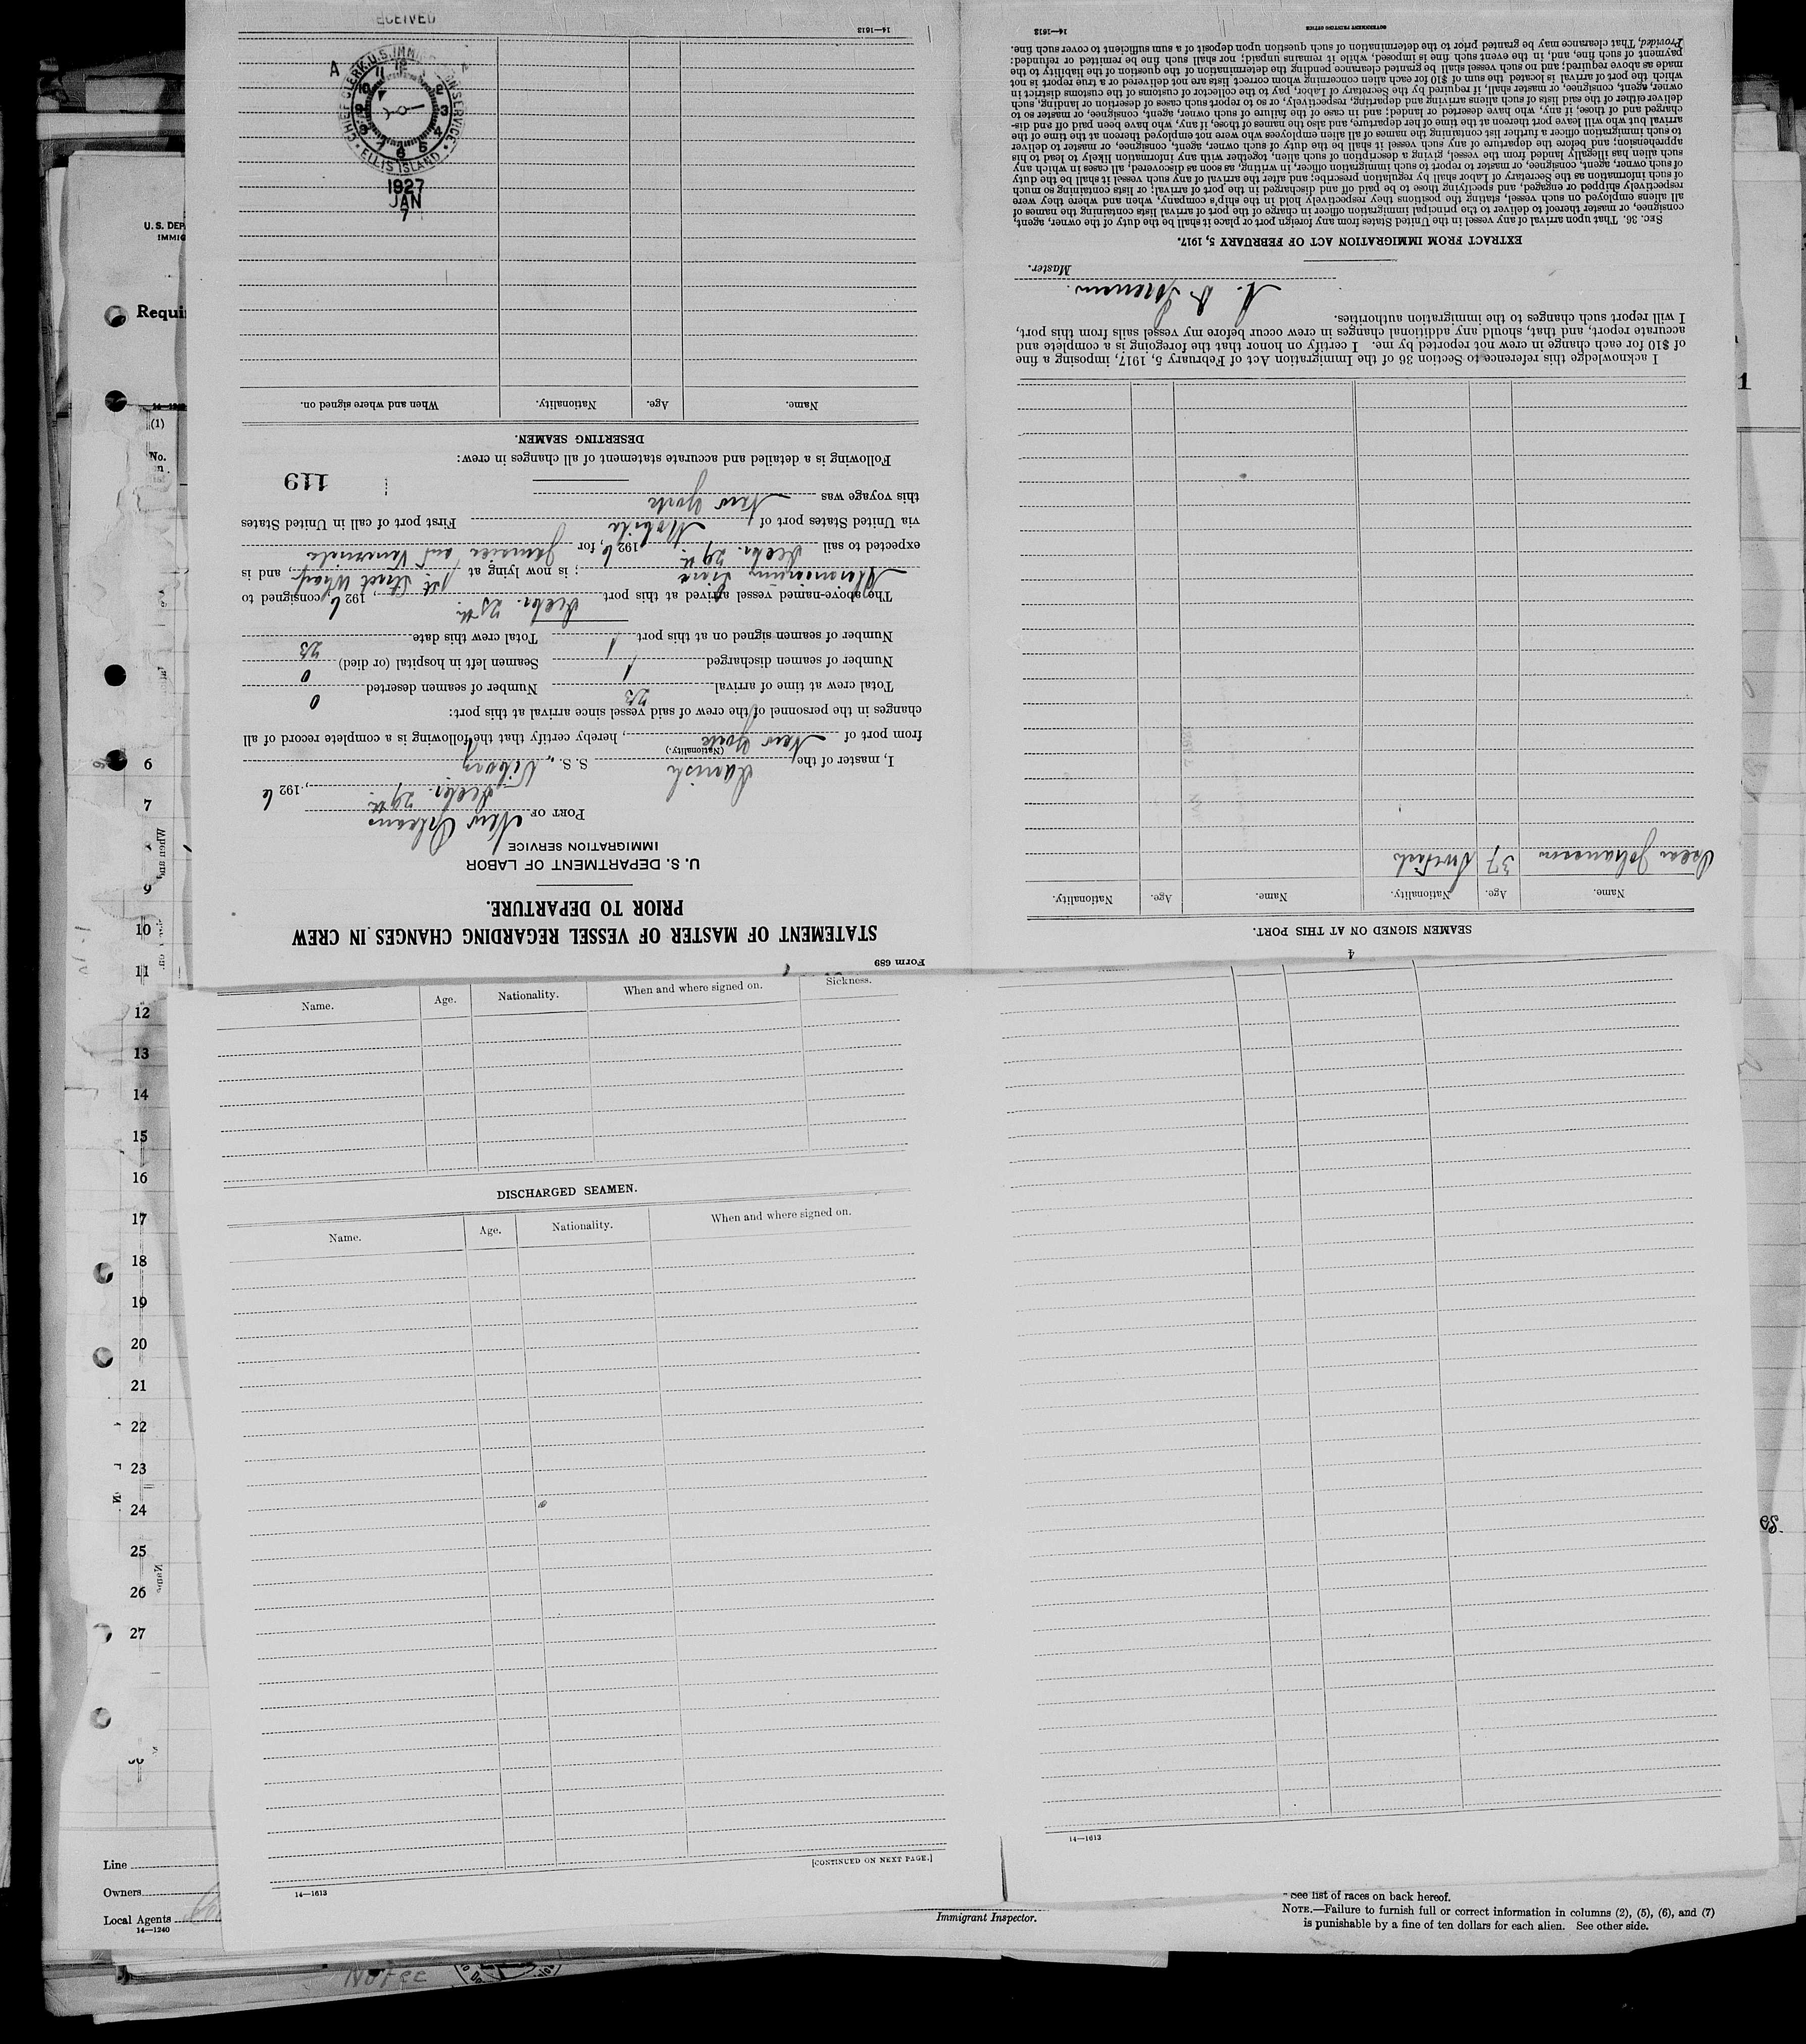 Form 689
STATEMENT OF MASTER OF VESSEL REGARDING CHANGES IN CREW
PRIOR TO DEPARTURE.
U. S. DEPARTMENT OF LABOR
IMMIGRATION SERVICE
PORT OF New Orleans
Decbr. 29th, 1926
I, master of the Danish S. S. "Viborg"
(Nationality.)
from port of New York, hereby certify that the following is a complete record of all
changes in the personnel of the crew of said vessel since arrival at this port:
Total crew at time of arrival 23 Number of seamen deserted 0
Number of seamen discharged 1 Seamen left in hospital (or died) 0
Number of seamen signed on at this port 1 Total crew this date 23
The above-named vessel arrived at this port Decbr. 25th, 1926 consigned to
Line; is now lying at 1st. Street Wharf, and is
expected to sail Decbr. 29th, 1926, for Jamaica and Venezuela
via United States port of Mobile First port of call in United States
this voyage was New York
119
Following is a detailed and accurate statement of all changes in crew:
DESERTING SEAMEN.
Name. Age. Nationality. When and where signed on.
14—1613
ECEIVED
CHIEF CLERK U.S. IMMIGRATION SERVICE
ELLIS ISLAND
1927
JAN
7
4
SEAMEN SIGNED ON AT THIS PORT.
Name. Age. Nationality. Name. Age. Nationality.
Oscar Johansson 37 Swedish
I acknowledge this reference to Section 36 of the Immigration Act of February 5, 1917, imposing a fine
of $10 for each change in crew not reported by me. I certify on honor that the foregoing is a complete and
accurate report, and that, should any additional changes in crew occur before my vessel sails from this port,
I will report such changes to the immigration authorities.
Master.
EXTRACT FROM IMMIGRATION ACT OF FEBRUARY 5, 1917.
SEC. 36. That upon arrival of any vessel in the United States from any foreign port or place it shall be the duty of the owner, agent,
consignee, or master thereof to deliver to the principal immigration officer in charge of the port of arrival lists containing the names of
all aliens employed on such vessel, stating the positions they respectively hold in the ship's company, when and where they were
respectively shipped or engaged, and specifying those to be paid off and discharged in the port of arrival; or lists containing so much
of such information as the Secretary of Labor shall by regulation prescribe; and after the arrival of any such vessel it shall be the duty
of such owner, agent, consignee, or master to report to such immigration officer, in writing, as soon as discovered, all cases in which any
such alien has illegally landed from the vessel, giving a description of such alien, together with any information likely to lead to his
apprehension; and before the departure of any such vessel it shall be the duty of such owner, agent, consignee, or master to deliver
to such immigration officer a further list containing the names of all alien employees who were not employed thereon at the time of the
arrival but who will leave port thereon at the time of her departure, and also the names of those, if any, who have been paid off and dis-
charged and of those, if any, who have deserted or landed; and in case of the failure of such owner, agent, consignee, or master so to
deliver either of the said lists of such aliens arriving and departing, respectively, or so to report such cases of desertion or landing, such
owner, agent, consignee, or master shall, if required by the Secretary of Labor, pay to the collector of customs of the customs district in
which the port of arrival is located the sum of $10 for each alien concerning whom correct lists are not delivered or a true report is not
made as above required; and no such vessel shall be granted clearance pending the determination of the question of the liability to the
payment of such fine, and, in the event such fine is imposed, while it remains unpaid; nor shall such fine be remitted or refunded:
Provided, That clearance may be granted prior to the determination of such question upon deposit of a sum sufficient to cover such fine.
14—1613
GOVERNMENT PRINTING OFFICE
Name. Age. Nationality. When and where signed on. Sickness.
DISCHARGED SEAMEN.
Name. Age. Nationality. When and where signed on.
[CONTINUED ON NEXT PAGE.]
14—1613
14—1613
U. S. DEP
IMMIG
Requi
(1)
No.
6
7
9
10
11
12
13
14
15
16
17
18
19
20
21
22
23
24
25
26
27
Line
Owners
Local Agents
14—1240
Immigrant Inspector.
* See list of races on back hereof.
NOTE.—Failure to furnish full or correct information in columns (2), (5), (6), and (7)
is punishable by a fine of ten dollars for each alien. See other side.
1
es.